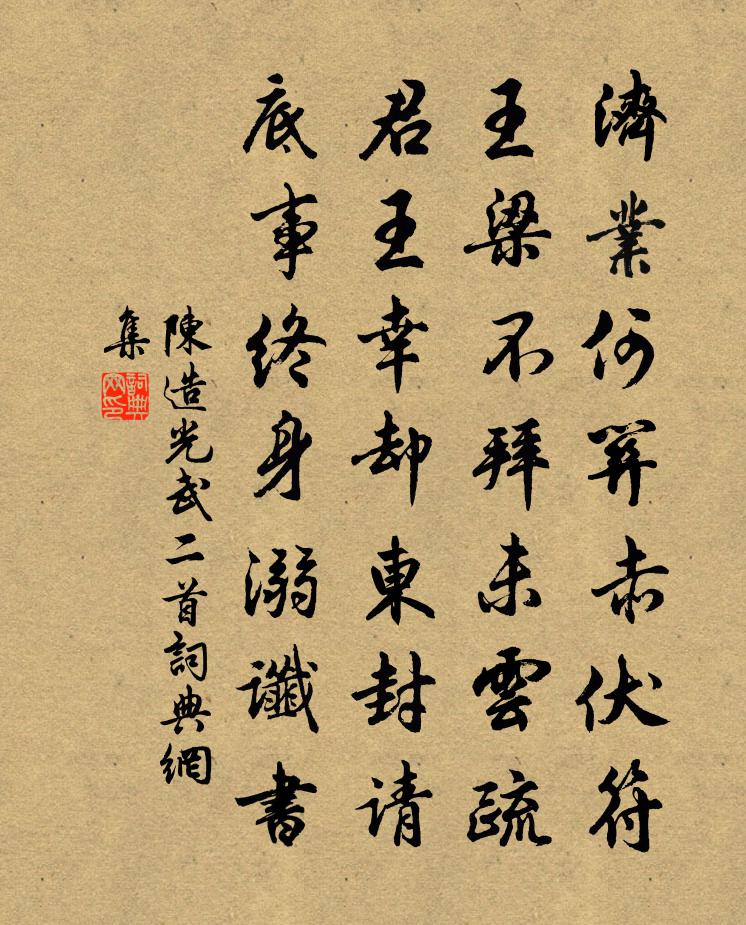 濟業何關赤伏符
王梁不拜未雲疏
君王幸却東封請
底事終身溺讖書
陳造光武二首詞典網
集
詞典
网印